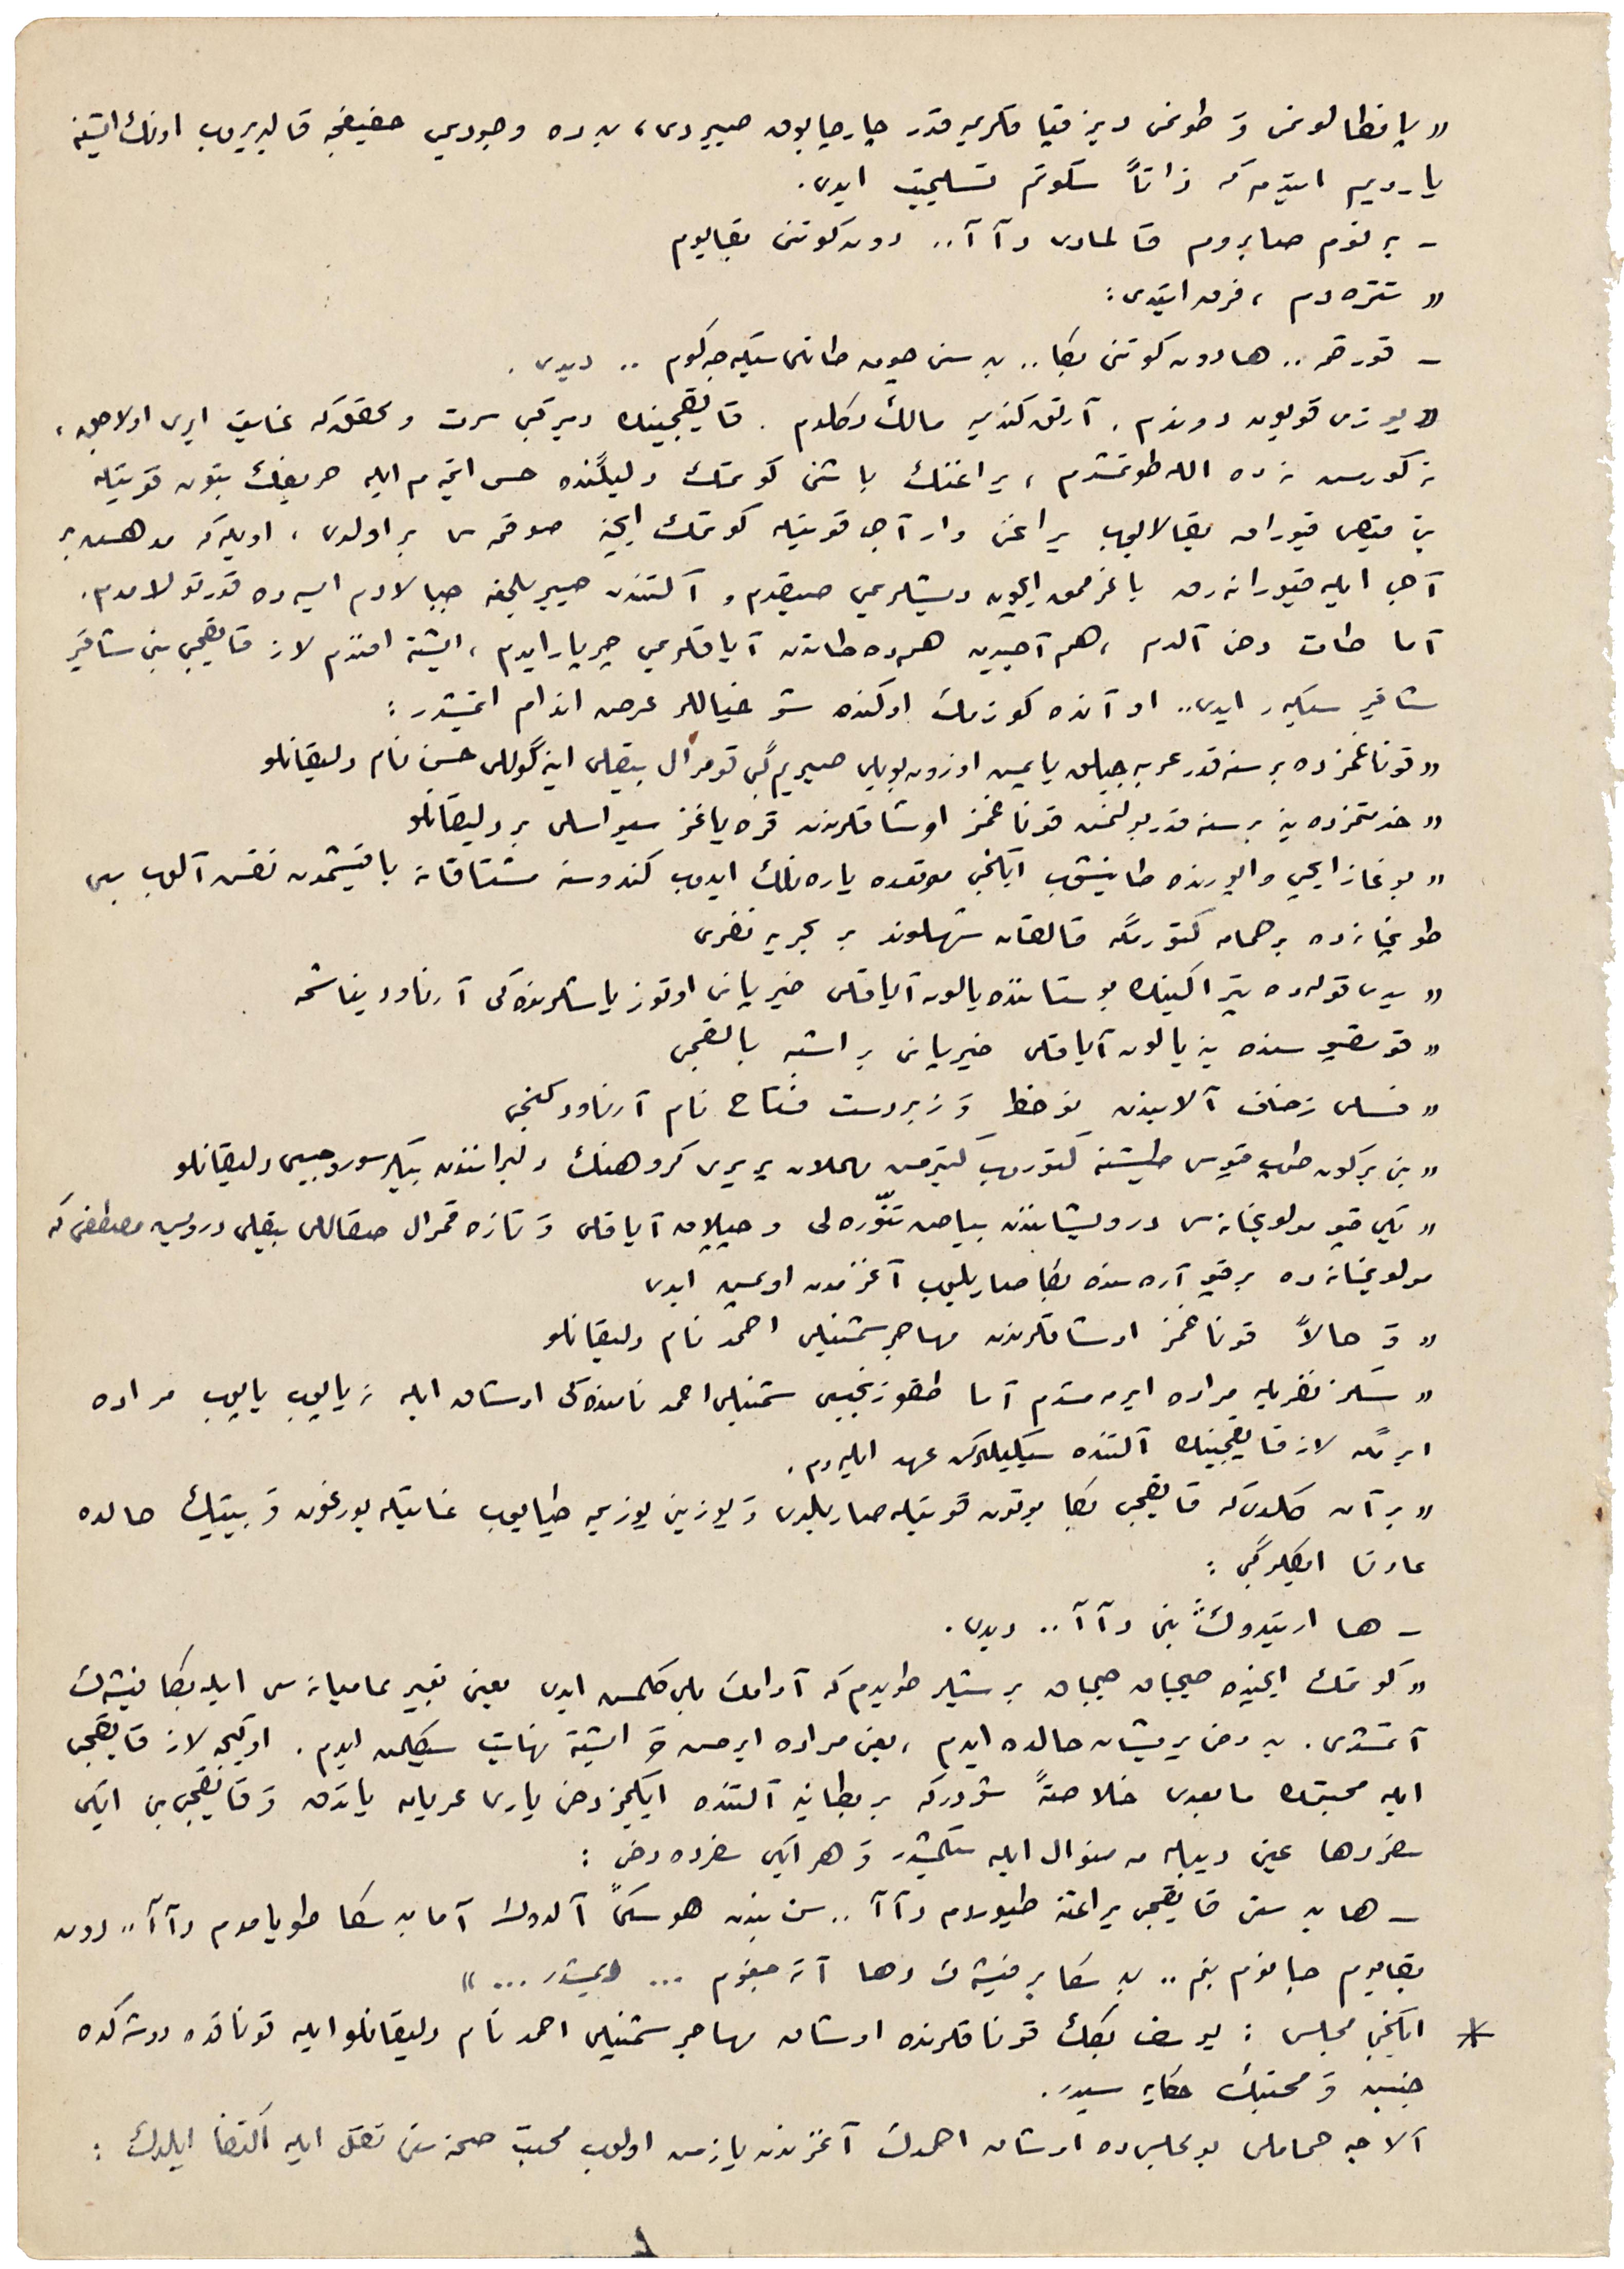 « پانطالونمی و طونمی دیز قپاقلریمه قدر چارچابوق صییردی، بن ده وجودیمی خفیفجه قالدیروب اونك ایشنه
یاردیم ایتدم كه ذاتاً سكوتم تسلیمیت ایدی.
ـ بر لقوم صابروم قالمادی دآآ.. دون كوتنی بقایوم
« تتره دم، فرق ایتدی:
ـ قورقمه.. ها دون كوتنی بكا.. بن سنی چوق طاتلی سیكه جكوم .. دیدی.
« یوزی قویون دوندم. آرتق كندیمه مالك دكلدم. قایقجینك دمیر كبی سرت و محقق كه غایت ایری اولاجق،
نه كورمش نه ده الله طوتمشدم، یراغنك باشنی كوتمك دلیكنده حس ایتدم ایله حریفك بتون قوتیله
بنی قیصقیوراق یقالایوب یراغنی وار آجی قوتیله كوتمك ایچنه صوقمه سی بر اولدی، اویله كه مدهش بر
آجی ایله قیورانه رق باغرمامق ایچون دیشلریمی صیقدم و آلتندن صییریلمغه چبالادم ایسه ده قورتولامدم.
آما طات دخی آلدم، هم آجیدن هم ده طاتدن آیاقلریمی چیرپار ایدم، ایشته افندم لاز قایقجی بنی شاقیر
شاقیر سیكیور ایدی.. او آنده كوزمك اوكنده شو خیاللر عرض اندام ایتمشدر:
« قوناغمزده بر سنه قدر عربه جیلق یاپمش اوزون بویلی صیریم كبی قومرال بیقلی اینه كوللی حسن نام دلیقانلو
« خدمتمزده ینه بر سنه قدر بولنمش قوناغمز اوشاقلرندن قره یاغز سیواسلی بر دلیقانلو
« بوغاز ایچی واپورنده طانیشوب ایكنجی موقعده یارنلك ایدوب كندوسنه مشتاقانه باقیشمدن نفس آلوب بنی
طوپخانه ده بر حمامه كتورمكه قالقان شهلوند بر بحریه نفری
« یدی قوله ده یتر اكینلك بوستاننده یالین آیاقلی خیرپانی اوتوز یاشلرنده كی آرناود یناشمه
« قومقپوسنده ینه یالین آیاقلی خیرپانی بر بالقجی
« فسلی زحاف آلایندن نوخط و زبردست فتاح نام آرناود كنجی
« بنی بر كون طوپ قپوسی طیشنه كتوروب كتیرمش محلان یریری كروهنك دلبرانندن بیكیر سوروجیسی دلیقانلو
« یكی قپو مولویخانه سی درویشانندن بیاض تنوره لی و چپلاق آیاقلی و تازه قمرال صقاللی بیقلی درویش مصطفی كه
مولویخانه ده بر قپو آره سنده بكا صاریلوب آغزمدن اوپمش ایدی
« و حالاً قوناغمز اوشاقلرندن مهاجر شمنیلی احمد نام دلیقانلو
« سكز نفریله مراده ایرمه مشدم آما طقوزنجیسی شمنیلی احمد نامنده كی اوشاق ایله نه یاپوب یاپوب مراده
ایرمكه لاز قایقجینك آلتنده سیكیلیركن عهد ایله دم.
« بر آن كلدی كه قایقجی بكا بوتون قوتیله صاریلدی و یوزینی یوزیمه طیایوب غایتله یورغون و بیتیك حالده
عادتا ایكلر كبی:
ـ ها اریتدوك بنی دآآ.. دیدی.
« كوتمك ایچنده صیجاق صیجاق بر شیلر طویدم كه آدامك بلی كلمش ایدی یعنی تعبیر عامیانه سی ایله بكا فیشك
آتمشدی. بن دخی پریشان حالده ایدم، یعنی مراده ایرمش و ایشته نهایت سیكلمش ایدم. او كیجه لاز قایقجی
ایله محبتك مابعدی خلاصةً شودر كه بر بطانیه آلتنده ایكیمز دخی یاری عریان یاتدق و قایقجی بنی ایكی
سفر دها عینی منوال ایله سیكمشدر و هر ایكی سفرده دخی:
ـ ها بن سنی قایقجی یراغنه طیوردم دآآ.. سن بندن هوسكی آلدوك آما بن سكا طویامدوم دآآ.. دون
بقایوم جانوم بنم.. بن سكا بر فیشك دها آته جغوم ... دیمشدر ... »
* ایكنجی مجلس: یوسف بكك قوناقلرنده اوشاق مهاجر شمنیلی احمد نام دلیقانلو ایله قوناقده دوشكده
جنبش و محبتك حكایه سیدر.
آلاجه حماملی بو مجلس ده اوشاق احمدك آغزندن یازمش اولوب محبت صحنه سنی نقل ایله اكتفا ایلدك: